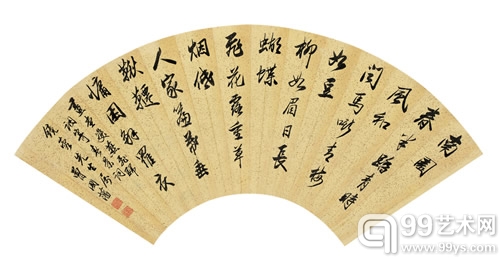 南園
春半踏青時
風和
聞馬嘶青梅
如豆
柳如眉日長
蝴蝶
飛花露重草
烟低
人家簾幕垂
鞦韆
慵困解羅衣
畫堂雙燕歸
先生 曾國藩
99艺术网
www.99ys.com